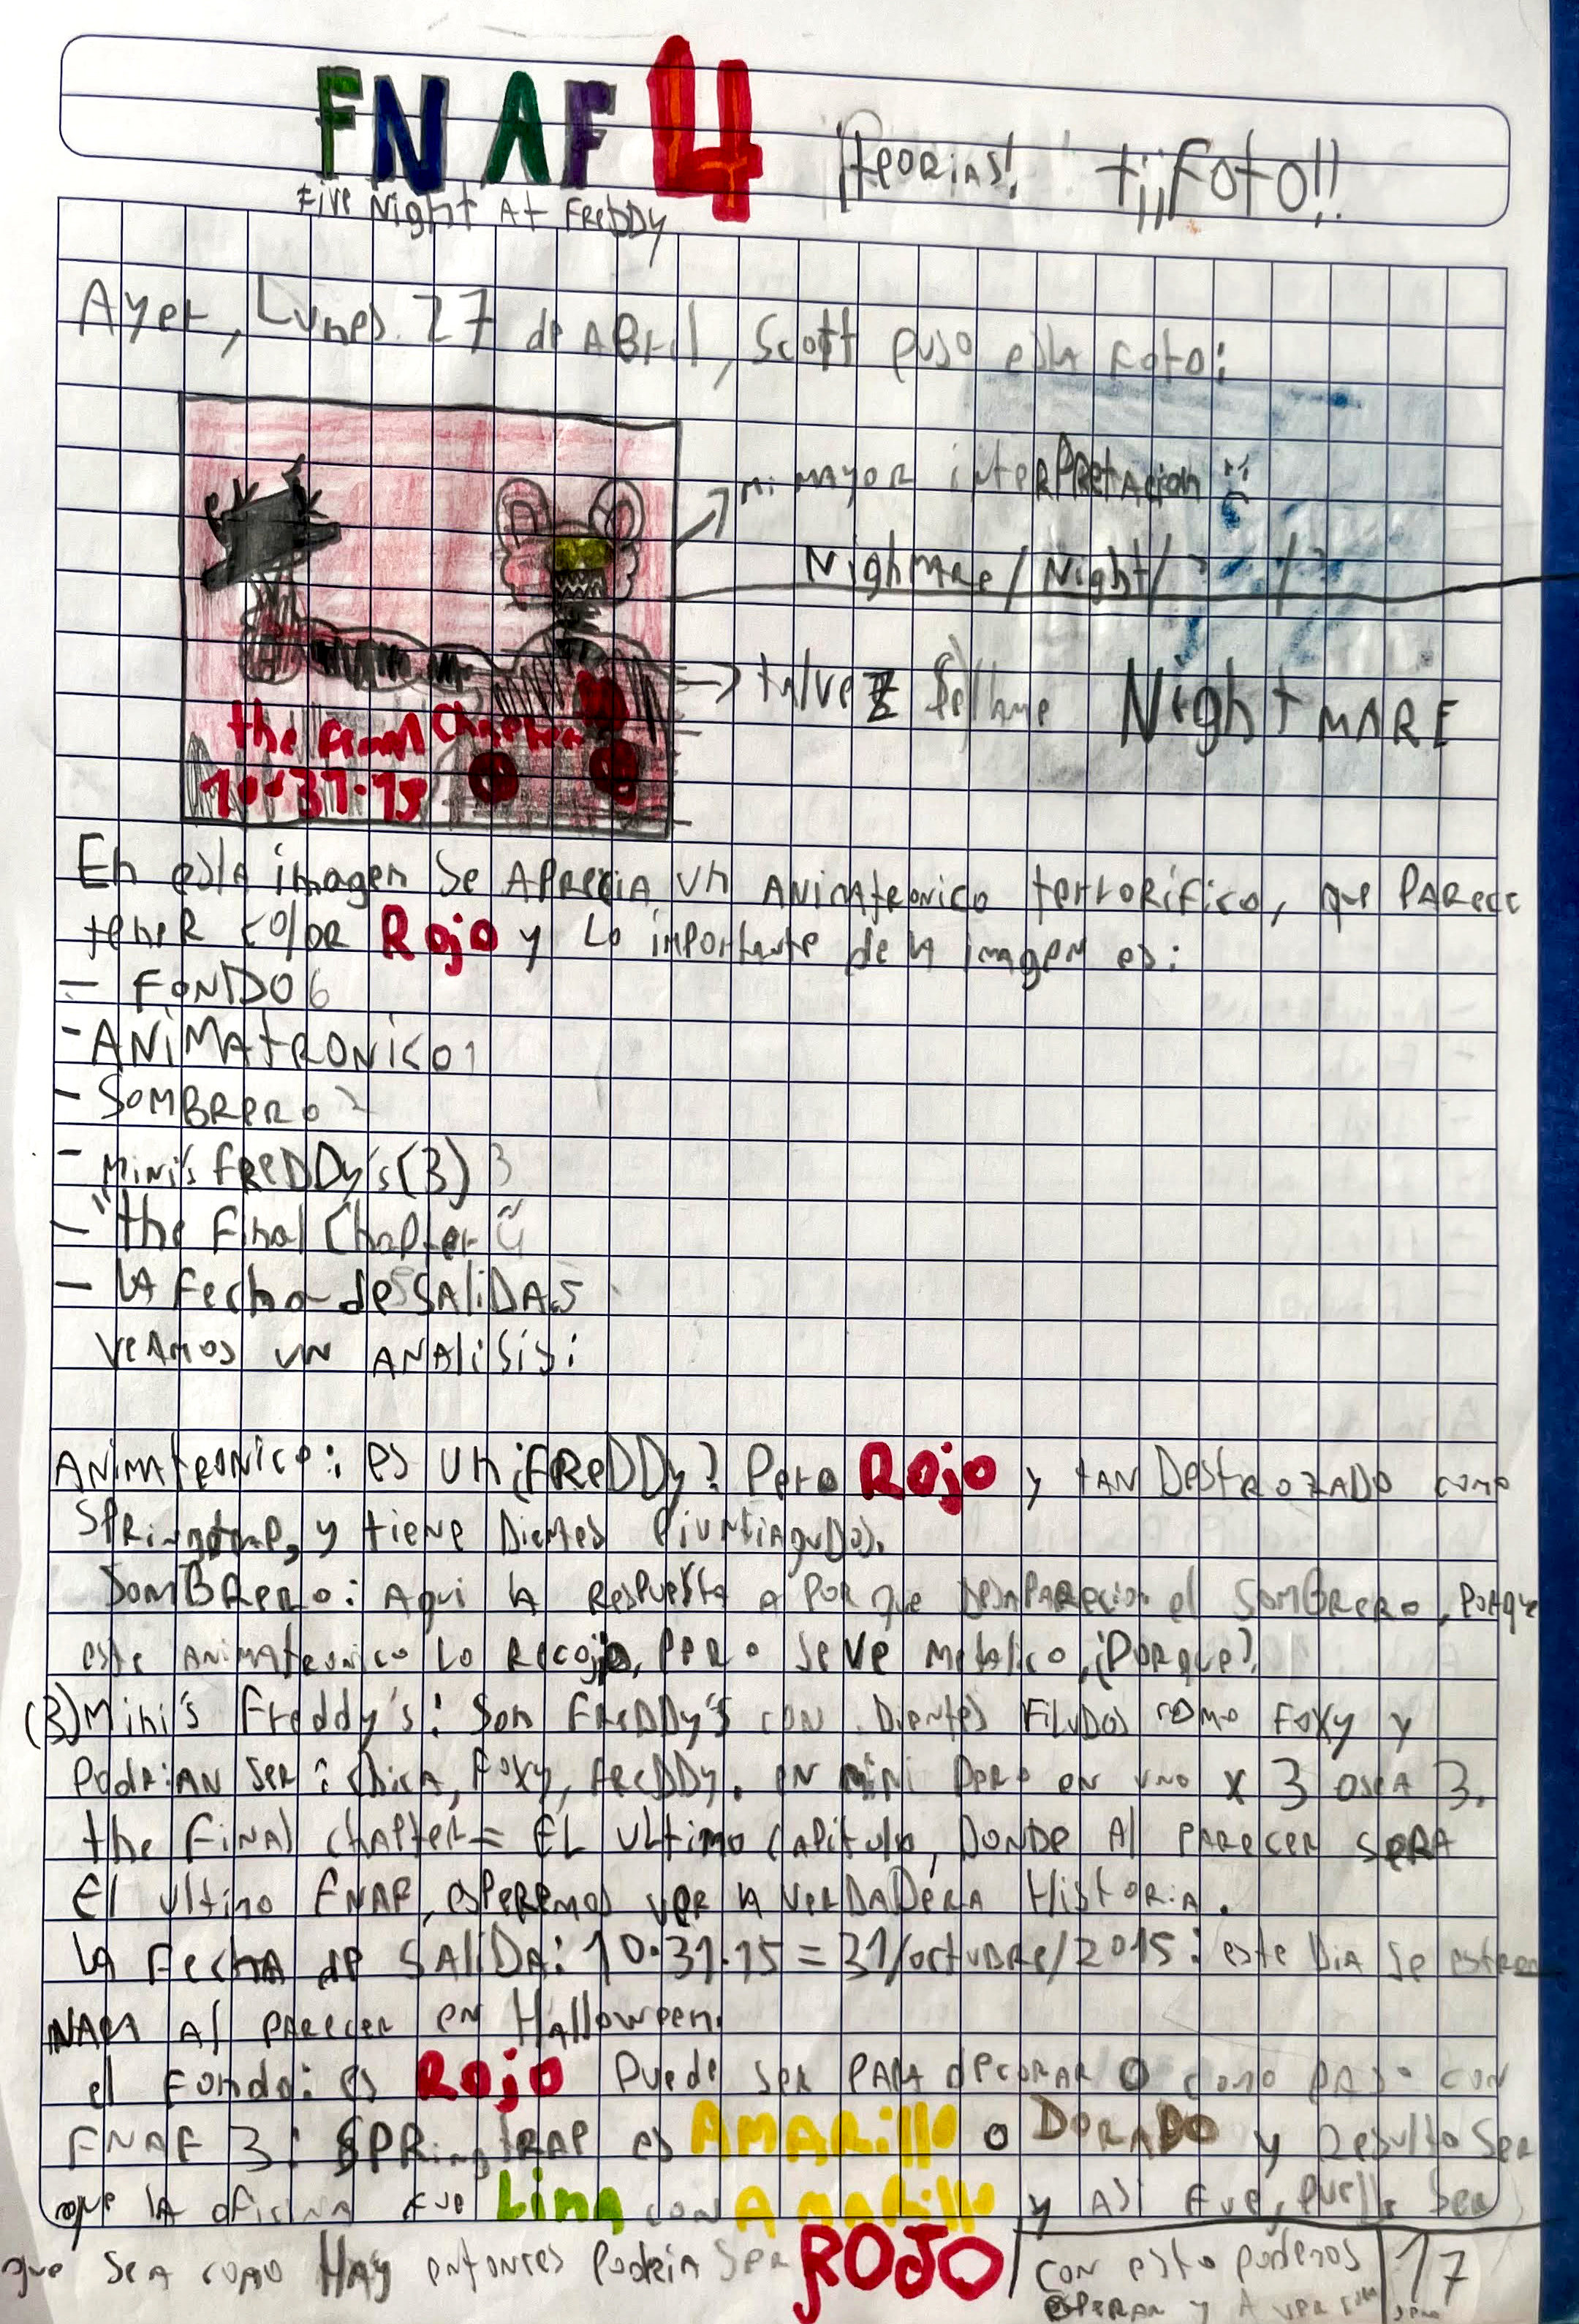 FNAF 4 ¡teorias! +¡¡¡Foto!!
Five Night At FReDDy
Ayer, Lunes 27 de ABril, Scott puso esta Foto:
mi mayor interpretacion :
Nighmare / Night / ? / ?
the final Chapter
10·31·15
→ talvez se llame NightMARE
En esta imagen se aprecia un animatronico terrorifico, que parece
tener color Rojo y Lo importante de la imagen es:
- FONDO 6
- ANIMATRONICO 1
- SOMBRERO 2
- Mini's FReDDy's (3) 3
- "the Final Chapter 4
- la Fecha de SALIDA 5
veamos un analisis:
Animatronico: es un ¿FReDDy? Pero Rojo y tan Destrozado como
Springtrap, y tiene Dientes
Sombrero: Aqui la Respuesta a por que desaparecio el sombrero, porque
este animatronico Lo Recojio, pero se ve metalico, ¿Porque?
(3) Mini's Freddy's: Son FReDDy's con Dientes Filudos como Foxy y
Podrian ser: Chica, Foxy, FReDDy. en mini pero en uno x 3 osea 3.
the Final chapter= EL ultimo Capitulo, DONDE Al parecer sera
El ultimo FNAF, esperemos ver la verDADera Historia.
la Fecha de SALIDA: 10·31·15 = 31/octubre/2015: este Dia se estre
nara al parecer en Halloween.
el Fondo: es Rojo Puede ser para decorar O como paso con
FNAF 3: SPRingtRAP es AMARillo o DORADO y Resulto Ser
que la oficina fue Lima con Amarillo y Asi Fue, puede Ser
que sea como Hay entonces podria Ser ROJO
con esto podemos
esperar y A ver
17